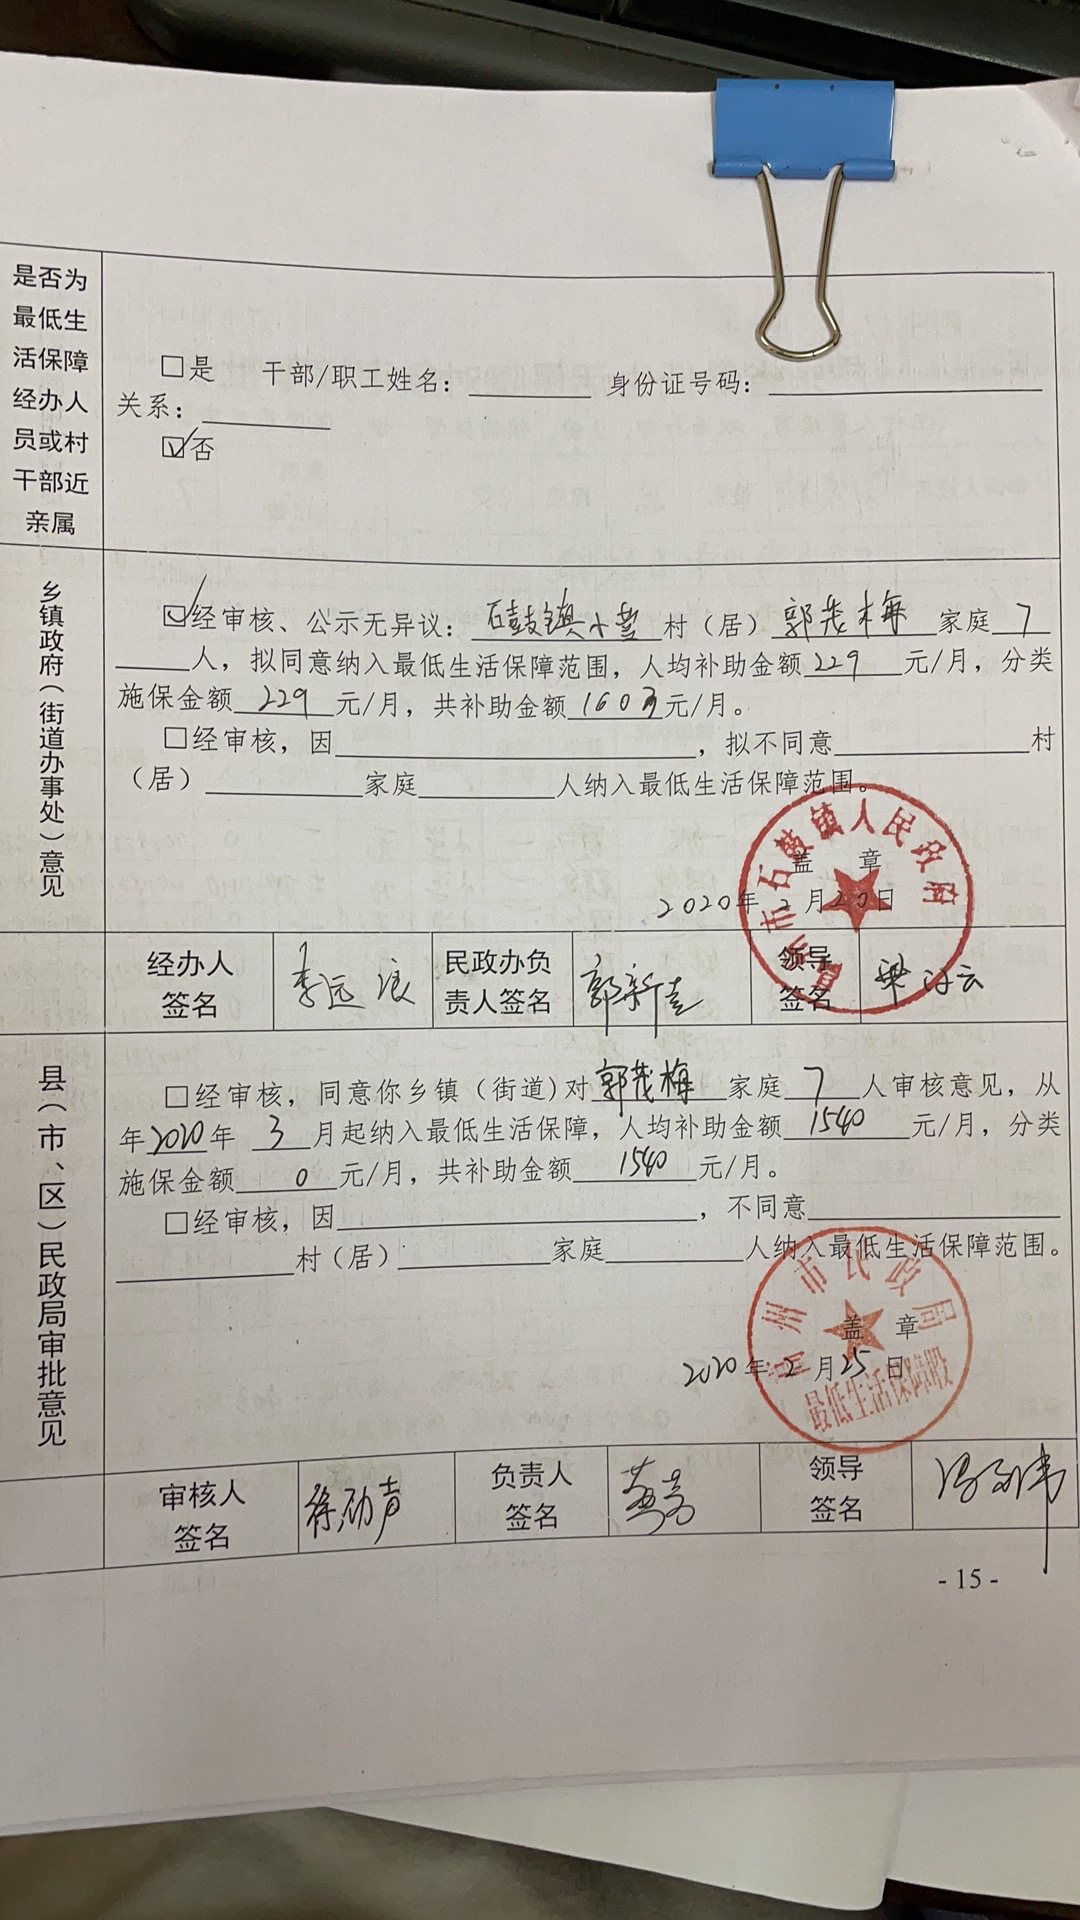 是否为
最低生
活保障
经办人
员或村
干部近
亲属
□是 干部/职工姓名：________ 身份证号码：________
关系：________
☑否
乡镇政府（街道办事处）意见
☑经审核、公示无异议：石鼓镇 村（居）郭茂梅 家庭 7
人，拟同意纳入最低生活保障范围，人均补助金额 229 元/月，分类
施保金额 229 元/月，共补助金额 1603 元/月。
□经审核，因________，拟不同意________村
（居）________家庭________人纳入最低生活保障范围。
市石鼓镇人民政府
盖 章
2020年2月20日
经办人
签名
李远浪
民政办负
责人签名
郭新
领导
签名
梁
县（市、区）民政局审批意见
□经审核，同意你乡镇（街道)对 郭茂梅 家庭 7 人审核意见，从
年2020年 3 月起纳入最低生活保障，人均补助金额 1540 元/月，分类
施保金额 0 元/月，共补助金额 1540 元/月。
□经审核，因________，不同意________
________村（居）________家庭________人纳入最低生活保障范围。
州市民政局
盖 章
2020年2月25日
最低生活保障股
审核人
签名
负责人
签名
领导
签名
- 15 -